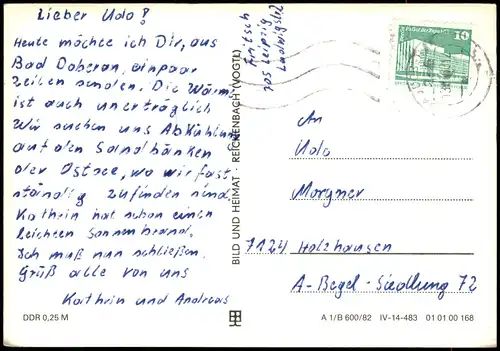 Lieber Udo!
Heute möchte ich Dir, aus
Bad Doberan, ein paar
Zeilen senden. Die Wärme
ist auch unerträglich
Wir suchen uns Abkühlung
auf den Sandbänken
der Ostsee, wo wir fast
ständig zufinden sind.
Kathrin hat schon einen
leichten Sonnenbrand.
Ich muß nun schließen.
Grüß alle von uns
Kathrin und Andreas
DDR 0,25 M
BILD UND HEIMAT · REICHENBACH (VOGTL)
Fritsch
705 Leipzig
10
An
Udo
Morgner
7124 Holzhausen
A-Begel-Siedlung 72
A 1/B 600/82 IV-14-483 01 01 00 168